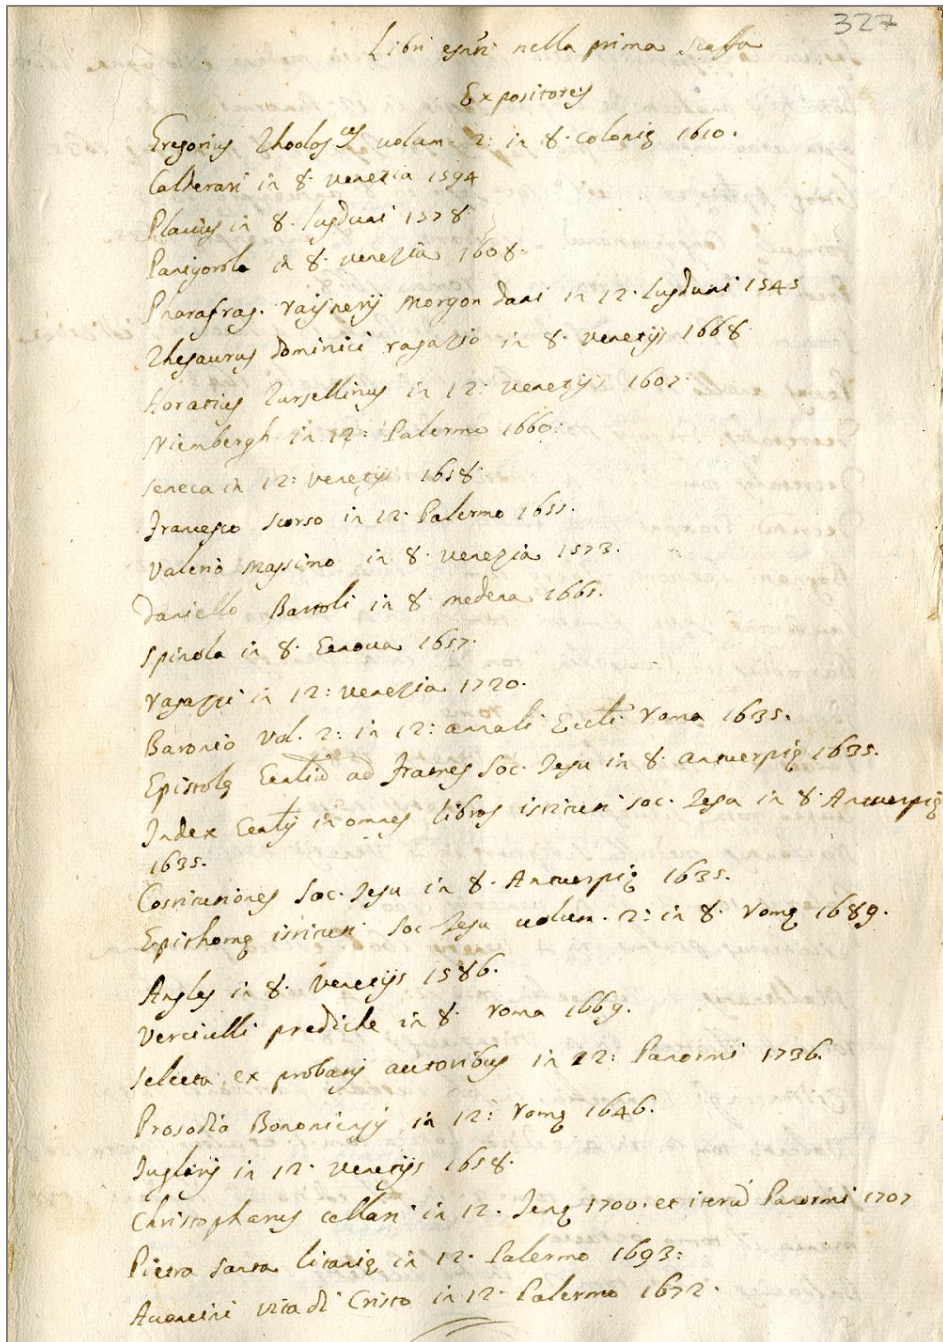 327
Libri esñti nella prima scaffa
Expositores
Gregorius Rhodos volum 2: in 8. colonię 1610.
Calderari in 8. venezia 1594
Planus in 8. lugduni 1578
Panigorola in 8. venezia 1608.
Pharafras. Morgon dani in 12. lugduni 1545
Thesaurus dominici ragazio in 8. venetijs 1668
Horatius Tursellinus in 12: venetijs 1602.
Niembergh in 12: Palermo 1660:
seneca in 12: venetijs 1658
Francesco scorso in 12. Palermo 1655.
Valerio Massimo in 8. venezia 1573.
Daniello Bartoli in 8. medena 1665.
Spinola in 8. Genova 1657.
ragazzi in 12: venezia 1720.
Baronio Vol. 2: in 12: annali Eccti roma 1635.
Epistolę ad Fratres Soc. Jesu in 8. antuerpię 1635.
Index in omnes libros istituti soc. Jesu in 8. Antuerpię
1635.
Costitutiones Soc. Jesu in 8. Antuerpię 1635.
Epithomę istituti Soc. Jesu volum. 2: in 8. romę 1689.
Angles in 8. venetijs 1586.
Vercielli prediche in 8. roma 1669.
selecta ex probatis auctoribus in 12: Panormi 1736.
Prosodia Bononiensis in 12: romę 1646.
Juglaris in 12. venetijs 1658.
Christopharus cellari in 12. Jenę 1700. et iterũ Panormi 1707
Pietra santa litanię in 12. Palermo 1693:
Auancini vita di Cristo in 12. Palermo 1672.